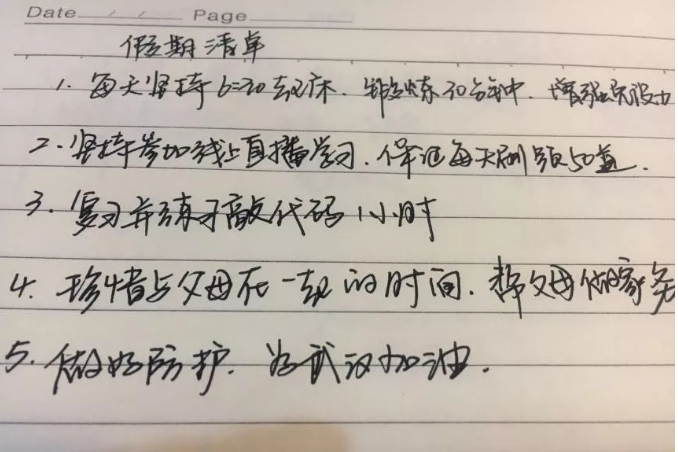 Date / / Page
假期清单
1. 每天坚持6:30起床.锻炼30分钟.增强免疫力
2. 坚持参加线上直播学习.保证每天刷题50道.
3. 复习并练习敲代码1小时
4. 珍惜与父母在一起的时间.帮父母做家务
5. 做好防护.为武汉加油.